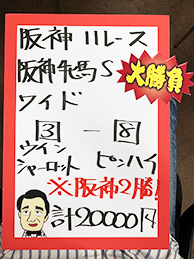 阪神 11レース
阪神牝馬S
大勝負
ワイド
3 - 8
ウイン ピンハイ
シャーロット
※阪神2勝!
計20000円